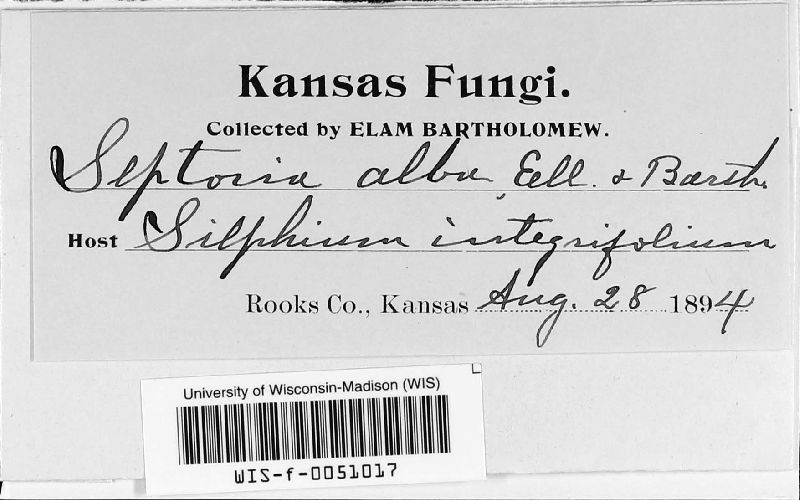 Kansas Fungi.
Collected by ELAM BARTHOLOMEW.
Septoria alba Ell. & Barth.
Host Silphium integrifolium
Rooks Co., Kansas Aug. 28 1894
University of Wisconsin-Madison (WIS)
WIS-f-0051017